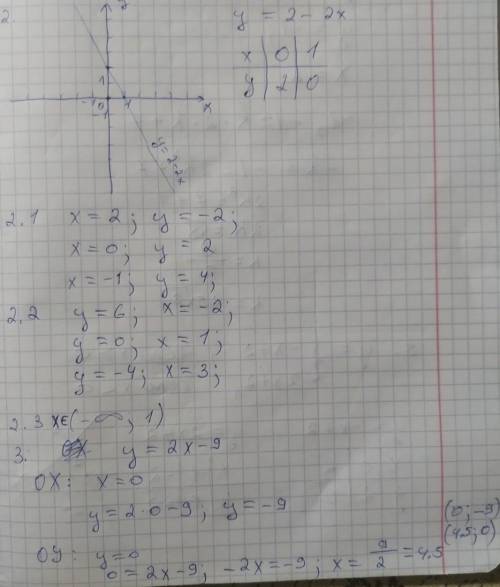 2.
y
y = 2 - 2x
x | 0 | 1
y | 2 | 0
1
-1 0 1 x
-1
y=2-2x
2.1 x = 2; y = -2;
x = 0; y = 2
x = -1; y = 4;
2.2 y = 6; x = -2;
y = 0; x = 1;
y = -4; x = 3;
2.3 x∈(-∞, 1)
3. y = 2x - 9
OX: x = 0
y = 2·0 - 9; y = -9
(0; -9)
(4.5; 0)
OY: y = 0
0 = 2x - 9; -2x = -9; x = 9/2 = 4.5